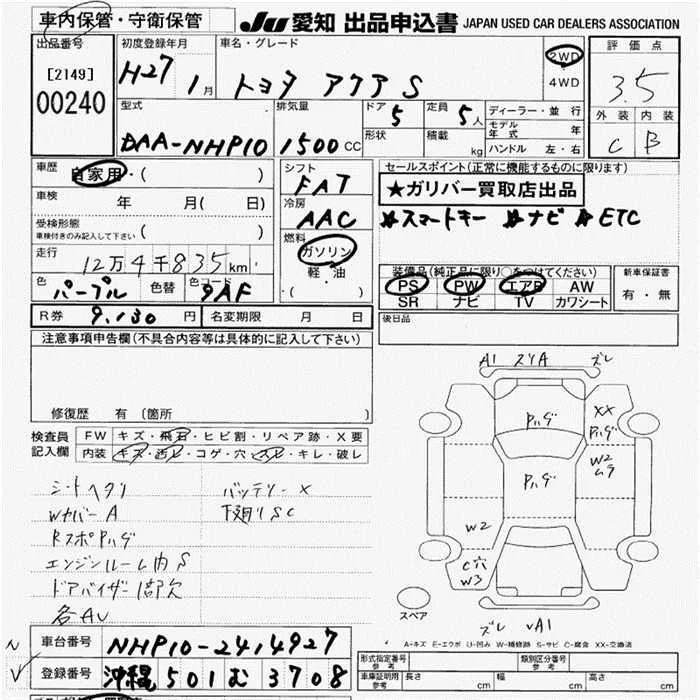 車内保管・守衛保管
JU 愛知 出品申込書 JAPAN USED CAR DEALERS ASSOCIATION
出品番号
[2149]
00240
初度登録年月
H27 1月
車名・グレード
トヨタ アクア S
2WD
4WD
評価点
3.5
外装 内装
C B
型式
DAA-NHP10
排気量
1500 CC
ドア
5
定員
5人
形状
積載
kg
ディーラー・並行
モデル年式 年
ハンドル 左・右
車歴
自家用・( )
車検
年 月( 日)
受検形態
車検付きのみ記入して下さい
( )
走行
12万4千835km
色
パープル
色替
色コード
9AF
シフト
FAT
冷房
AAC
燃料
ガソリン
軽・油
・( )
セールスポイント(正常に機能するものに限ります)
★ガリバー買取店出品
☆スマートキー ☆ナビ ☆ETC
装備品(純正品に限り○をつけてください)
PS PW エアB AW
SR ナビ TV カワシート
新車保証書
有・無
R券 9,130円
名変期限 月 日
後日品
注意事項申告欄(不具合内容等は具体的に記入して下さい)
修復歴 有 (箇所 )
検査員
記入欄
FW キズ・飛石・ヒビ割・リペア跡・X要
内装 キズ・汚レ・コゲ・穴・スレ・キレ・破レ
シートヘタリ
Wカバー A
RスポPハゲ
エンジンルーム内S
ドアバイザー1部欠
各AU
バッテリーX
下廻りSC
A1 スリA ズレ
Pハゲ
XX
Pハゲ
W2
ムラ
Pハゲ
W2
C穴
W3
スペア
ズレ A1
A-キズ E-エクボ U-凹み W-補修跡 S-サビ C-腐食 XX-交換済
車台番号 NHP10-2414927
登録番号 沖縄 501 む 3708
形式指定番号
参考
類別区分番号
参考
車庫証明用
参考
長さ cm 幅 cm 高さ cm